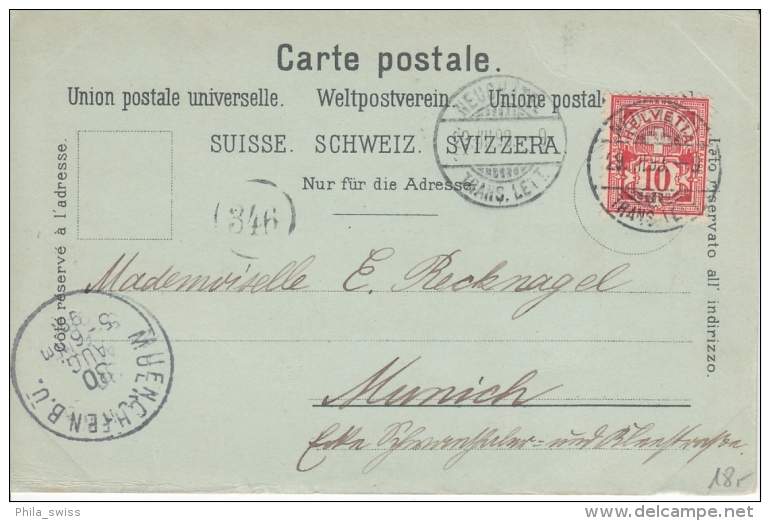 Carte postale.
Union postale universelle. Weltpostverein. Unione postal
SUISSE. SCHWEIZ. SVIZZERA.
Nur für die Adresse
Côté réservé à l'adresse.
Lato riservato all' indirizzo.
346
NEUCHATEL
TRANS. LETT.
HELVETIA
10
TRANS. LE
Mademoiselle E. Recknagel
Munich
Ecke Schwanthaler- und
MUENCHEN B.U.
30
AUG
18-
Phila_swiss
delcampe.net